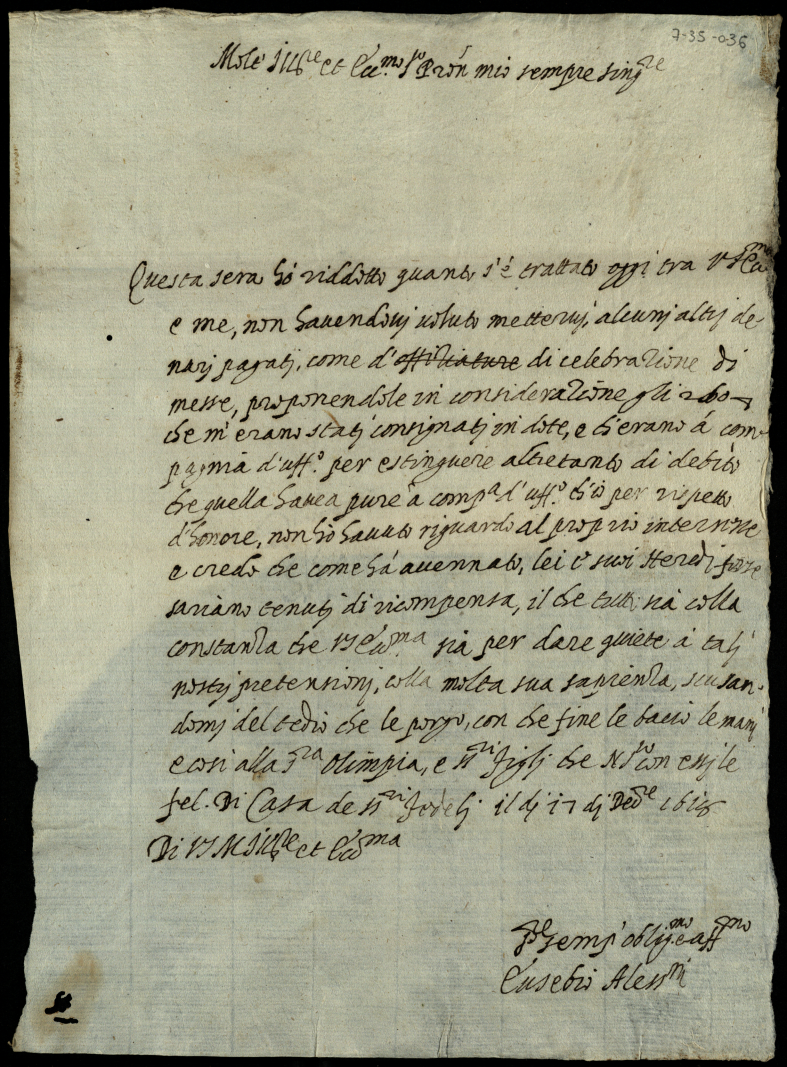 7-35-036
Molt' Ill.re et Ecc.mo S.r P.rón mio sempre sing.re
Questa sera hò riddotto quanto s'è trattato oggi tra V.S. Ecc.ma
e me, non havendovj voluto mettervj alcunj altrj de-
narj pagatj, come d'offitiature di celebratione di
messe, proponendole in consideratione gli
che m'erano statj consignatj in dote, e ch'erano à com-
pagnia d'uff.o per estinguere altretanto di debito
che quella havea pure à comp.a d'uff.o ch'io per rispetto
d'honore, non hò havuto riguardo al proprio interesse
e credo che come hà avennato, lei ò suoi Heredj
sariano tenutj di ricompensa, il che tutto sia colla
constanza che V.S. Ecc.ma sia per dare quiete à talj
nostrj pretensionj, colla molta sua sapienza, scusan-
domj del tedio che le porgo, con che fine le bacio le manj
e così alla S.ra Olimpia, e SS.ri figlj che N.S.re con essj le
fel. Di Casa de SS.ri Fedelj il dj 17 dj Dec.re 1618
Di V.S. M. Ill.re et Ecc.ma
Se.re semp' oblig.mo e aff.mo
Eusebio Aless.ni